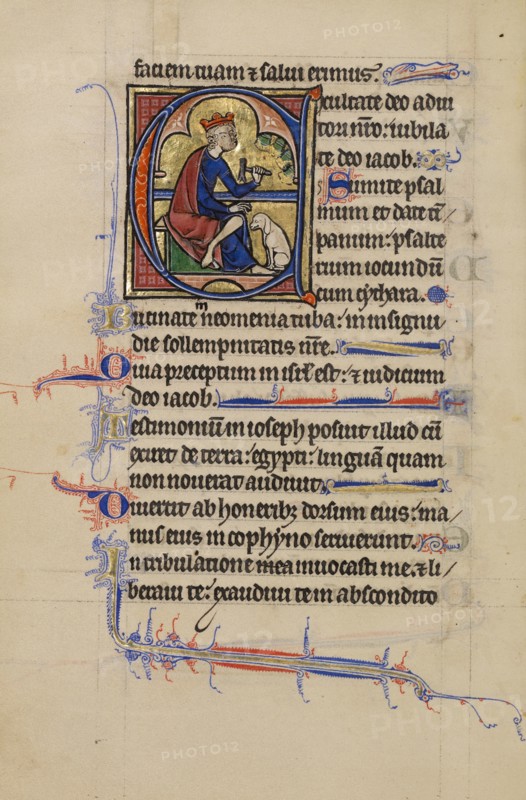 faciem tuam ⁊ salui erimus.
Exultate deo adiu
tori nr̄o: iubila
te deo iacob.
Sumite psal
mum et date tẽ
panum: psalte
rium iocundũ
cum cythara.
Bucinate in neomenia tuba: in insigni
die sollempnitatis nr̄e.
Quia preceptum in isrł est: ⁊ iudicium
deo iacob.
Testimoniũ in ioseph posuit illud cũ
exiret de terra: egypti: linguã quam
non nouerat audiuit.
Diuertit ab honeribꝫ dorsum eius: ma
nus eius in cophyno seruierunt.
In tribulatione mea inuocasti me. ⁊ li
beraui te: exaudiui te in abscondito
PHOTO12